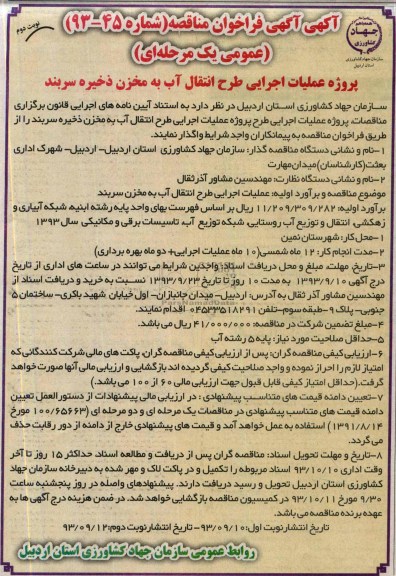 آگهی آگهی فراخوان مناقصه(شماره ۴۵-۹۳)
(عمومی یک مرحله‌ای)
نوبت دوم
جهاد
کشاورزی
سازمان جهاد کشاورزی
استان اردبیل
پروژه عملیات اجرایی طرح انتقال آب به مخزن ذخیره سربند
سازمان جهاد کشاورزی استان اردبیل در نظر دارد به استناد آیین نامه های اجرایی قانون برگزاری
مناقصات، پروژه عملیات اجرایی طرح پروژه عملیات اجرایی طرح انتقال آب به مخزن ذخیره سربند را از
طریق فراخوان مناقصه به پیمانکاران واجد شرایط واگذار نمایند.
۱-نام و نشانی دستگاه مناقصه گذار: سازمان جهاد کشاورزی استان اردبیل- اردبیل- شهرک اداری
بعثت(کارشناسان)میدان مهارت
۲-نام و نشانی دستگاه نظارت: مهندسین مشاور آذر ثقال
موضوع مناقصه و برآورد اولیه: عملیات اجرایی طرح انتقال آب به مخزن سربند
برآورد اولیه: ۱۱/۲۰۹/۳۰۹/۲۸۲ ریال بر اساس فهرست بهای واحد پایه رشته ابنیه شبکه آبیاری و
زهکشی، انتقال و توزیع آب روستایی، شبکه توزیع آب، تاسیسات برقی و مکانیکی سال ۱۳۹۳
۱-محل کار: شهرستان نمین
۲-مدت انجام کار: ۱۲ ماه شمسی(۱۰ ماه عملیات اجرایی+ دو ماه بهره برداری)
۳-تاریخ، مهلت، مبلغ و محل دریافت اسناد: واجدین شرایط می توانند در ساعت های اداری از تاریخ
درج آگهی ۱۳۹۳/۹/۱۰ به مدت ۱۰ روز تا تاریخ ۱۳۹۳/۹/۲۳ نسبت به خرید و دریافت اسناد از
مهندسین مشاور آذر ثقال به آدرس: اردبیل- میدان جانبازان- اول خیابان شهید باکری- ساختمان ۵
جنوبی- پلاک ۹-طبقه سوم-تلفن ۰۴۵۳۳۵۱۸۲۹۱ اقدام نمایند.
۴-مبلغ تضمین شرکت در مناقصه: ۴۱/۰۰۰/۰۰۰ ریال می باشد.
۵-حداقل صلاحیت مورد نیاز: پایه ۵ رشته آب
۶-ارزیابی کیفی مناقصه گران: پس از ارزیابی کیفی مناقصه گران، پاکت های مالی شرکت کنندگانی که
امتیاز لازم را احراز نموده و واجد صلاحیت کیفی گردیده اند بازگشایی و ارزیابی مالی آنها صورت خواهد
گرفت.(حداقل امتیاز کیفی قابل قبول جهت ارزیابی مالی ۶۰ از ۱۰۰ می باشد.)
۷-تعیین دامنه قیمت های متناسب پیشنهادی : در ارزیابی مالی پیشنهادات از دستور العمل تعیین
دامنه قیمت های متناسب پیشنهادی در مناقصات یک مرحله ای و دو مرحله ای (۱۰۰/۶۵۶۶۳ مورخ
۱۳۹۱/۸/۱۴) استفاده به عمل خواهد آمد و قیمت های پیشنهادی خارج از دامنه از دور رقابت حذف
می گردد.
۸-تاریخ و مهلت تحویل اسناد: مناقصه گران پس از دریافت و مطالعه اسناد حداکثر ۱۵ روز تا آخر
وقت اداری ۹۳/۱۰/۱۰ اسناد مربوطه را تکمیل و در پاکت لاک و مهر شده به دبیرخانه سازمان جهاد
کشاورزی استان اردبیل تحویل و رسید دریافت دارند. پیشنهادهای واصله در روز پنجشنبه ساعت
۹/۳۰ مورخ ۹۳/۱۰/۱۱ در کمیسیون مناقصه بازگشایی خواهد شد. در ضمن هزینه درج آگهی ها به
عهده برنده مناقصه می باشد.
تاریخ انتشار نوبت اول: ۹۳/۰۹/۱۰- تاریخ انتشار نوبت دوم: ۹۳/۰۹/۱۲
روابط عمومی سازمان جهاد کشاورزی استان اردبیل